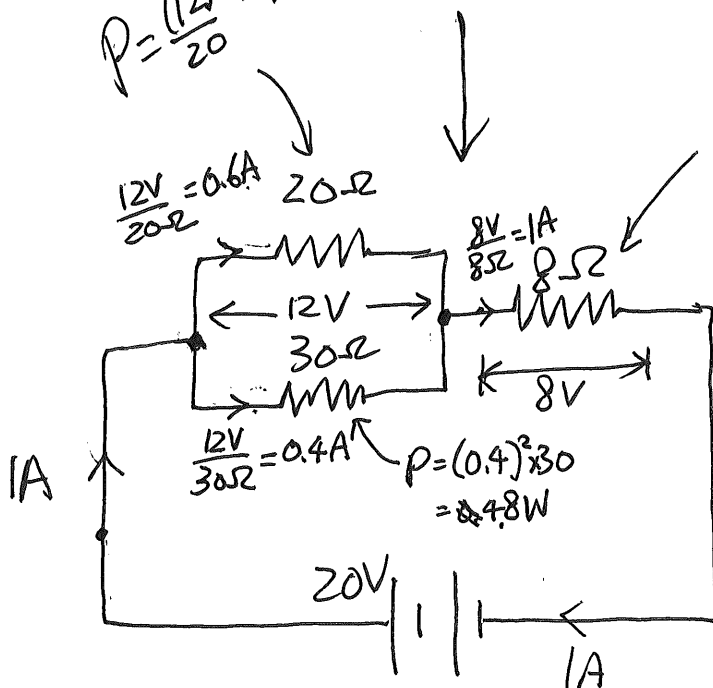 P=(12)
20
12V/20Ω =0.6A
20Ω
8V/8Ω =1A
8Ω
12V
30Ω
8V
12V/30Ω =0.4A
P=(0.4)²×30
=4.8W
1A
20V
1A